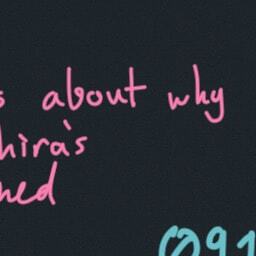 about why
hira's
ned
@91